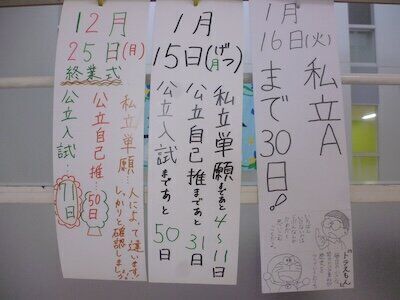 12月
25日(月)
終業式
私立単願…人によって違います。
しっかりと確認しましょう。
公立自己推…50日
公立入試…71日
1月
15日(げつ月)
私立単願まであと4〜11日
公立自己推まであと31日
公立入試まであと50日
1月
16日(火)
私立A
まで30日!!
ドラえもん